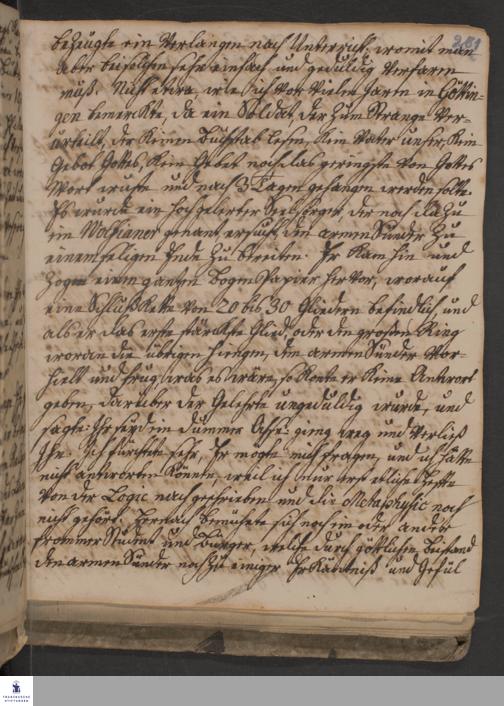 251
bezeugte ein Verlangen nach Unterricht, womit man
aber bei solchen sehr einfach und geduldig verfaren
muß. Nicht etwa, wie ich vor vielen Jaren in Göttin-
gen bemerkte, da ein Soldat, der zum Strange ver-
urteilt, der keinen Buchstab lesen, kein Vater unser, kein
Gebot Gottes, kein Gebet noch das geringste von Gottes
Wort wuste, und nach 3 Tagen gehangen werden solte.
Es wurde ein hochgelerter Seelsorger, der noch dazu
ein Wolfianer genant, ersucht, den armen Sünder zu
einem seligen Ende zu bereiten. Er kam hin und
zoge einen gantzen Bogen Papier hervor, worauf
eine Schluß Kette von 20 bis 30 Gliedern befindlich, und
als er das erste stärkste Glied, oder den großen Ring
woran die übrigen hiengen, dem armen Sünder vor-
hielt und frug was es wäre, so konte er keine Antwort
geben, darüber der Gelehrte ungeduldig wurde, und
sagte: Ihr seyd ein dummer Ochse: ging weg und verließ
Ihn. Ich fürchtete sehr, Er mogte mich fragen, und ich hätte
nicht antworten können, weil ich nur erst etliche Hefte
von der Logic nachgeschrieben und die Metaphysic noch
nicht gehört. Hernach bemühete sich noch ein oder ander
frommer Student und Bürger, welche durch göttlichen Beistand
den armen Sünder noch zu einiger Erkäntniß und Gefül
FRANCKESCHE
STIFTUNGEN